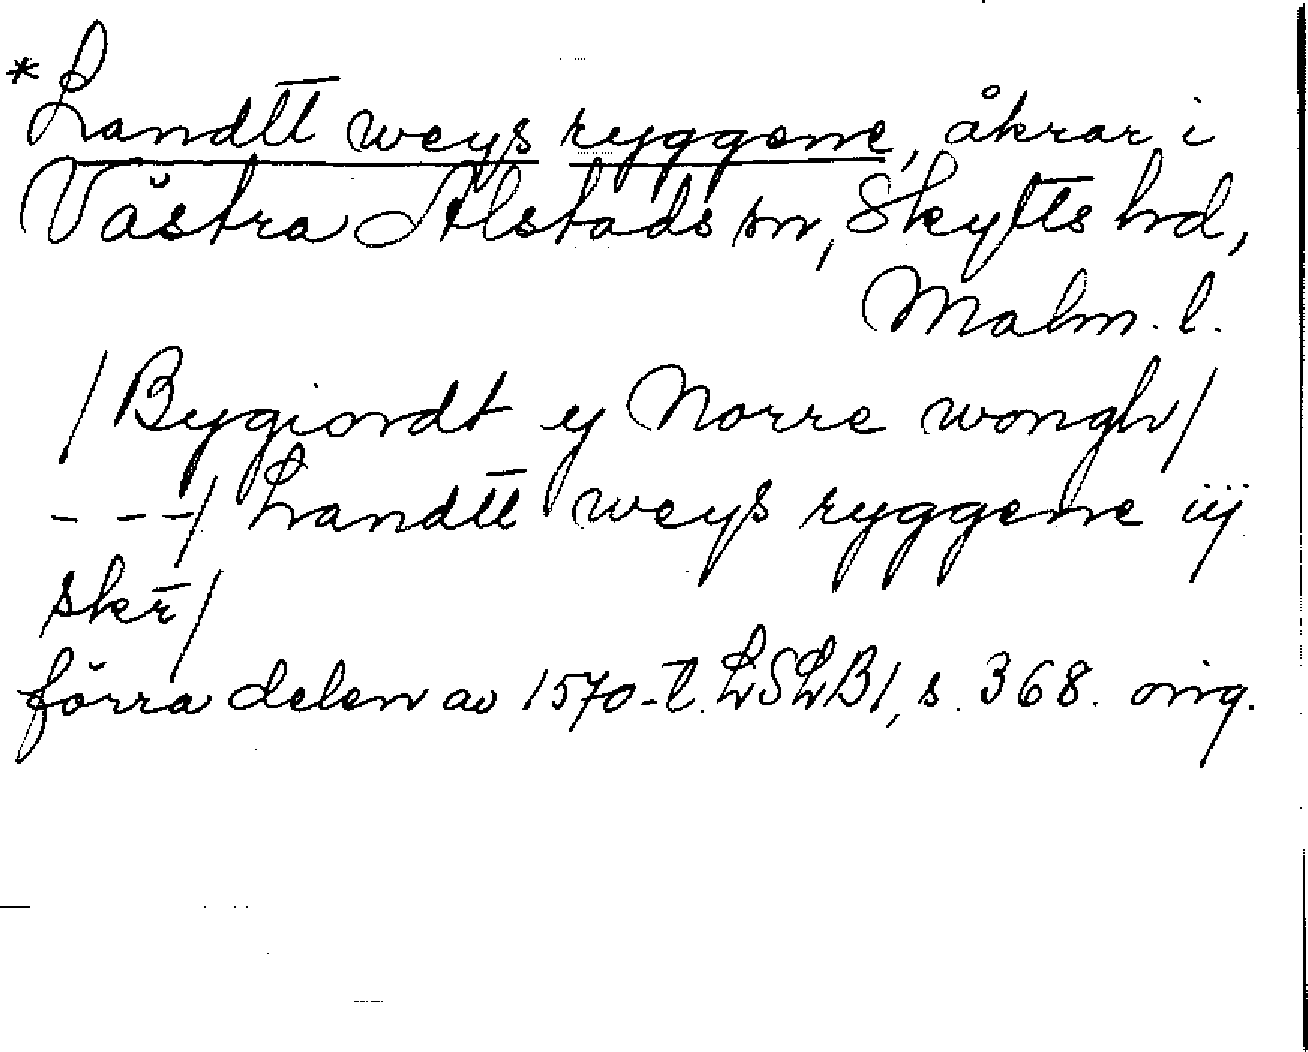 *Landtt weys ryggene, åkrar i
Västra Alstads sn, Skytts hd,
Malm. l.
/Bygiordt ey Norre wongh/
- - -/ Landtt weys ryggene iij
skr̄/
förra delen av 1570-t. LSLB1, s. 368. orig.